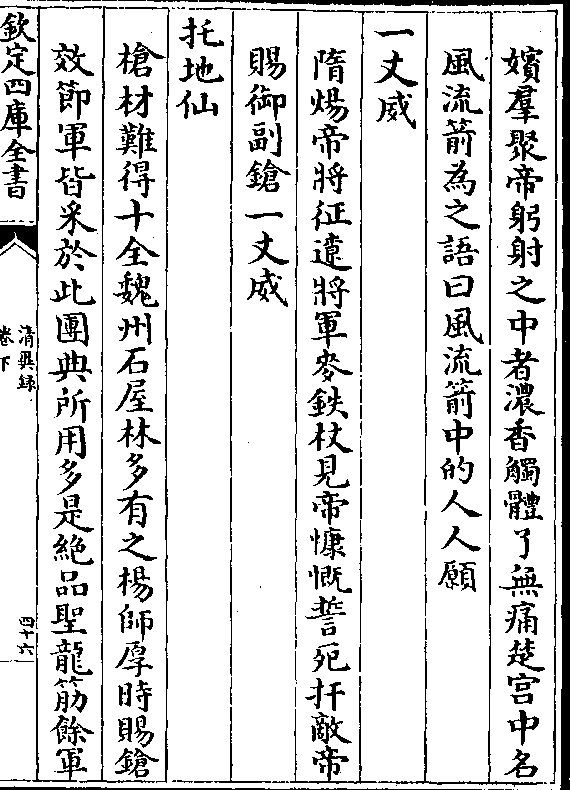 嬪羣聚帝躬射之中者濃香觸體了無痛楚宮中名
風流箭為之語曰風流箭中的人人願
一丈威
隋煬帝將征遼將軍麥鉄杖見帝慷慨誓死扞敵帝
賜御副鎗一丈威
托地仙
槍材難得十全魏州石屋林多有之楊師厚時賜鎗
效節軍皆采於此團典所用多是絶品聖龍筋餘軍
欽定四庫全書
清異録
卷下
四十六